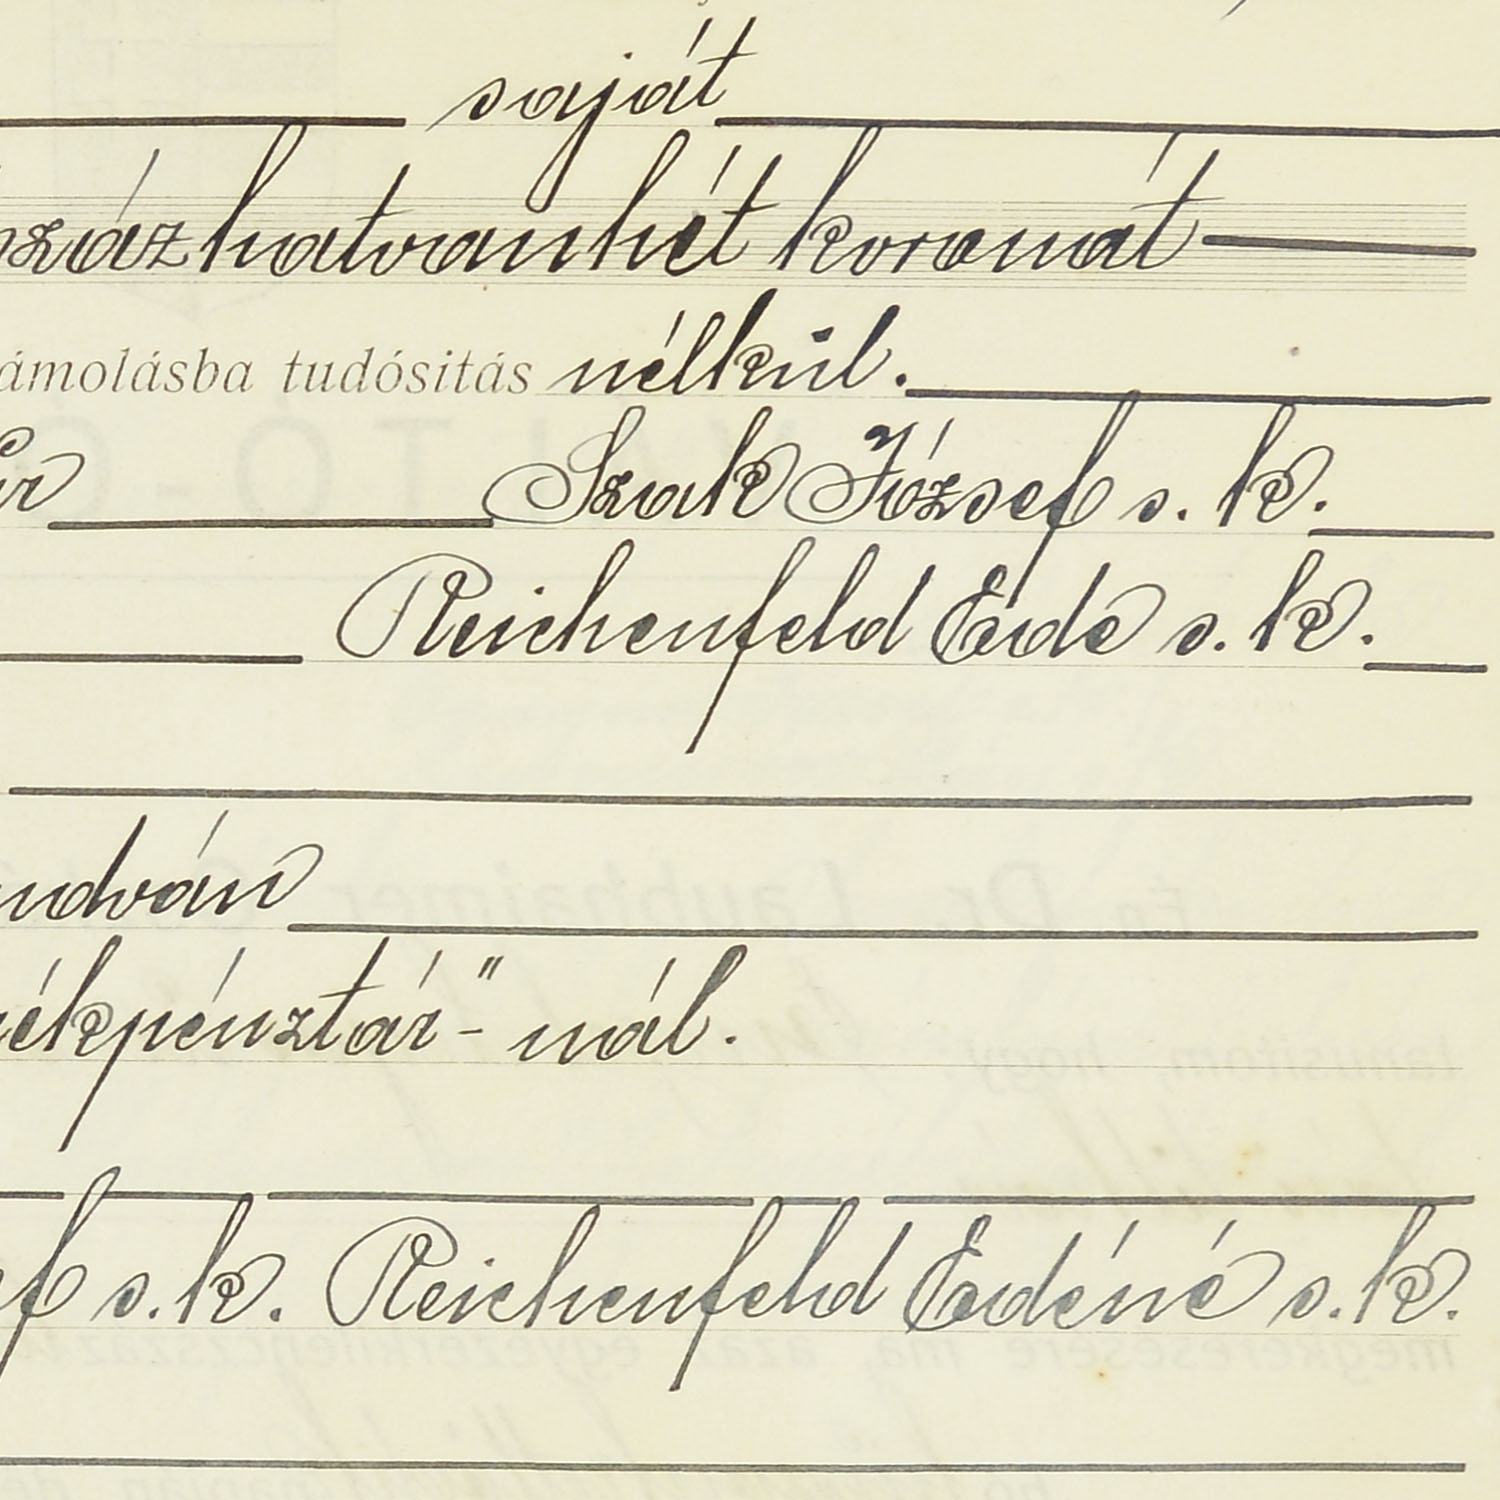 saját
száz hatvanhét koronát
ámolásba tudósitás nélkül.
Szak József s. k.
Reichenfeld Ede s. k.
udván
ékpénztár"- nál.
s. k. Reichenfeld Edéné s. k.